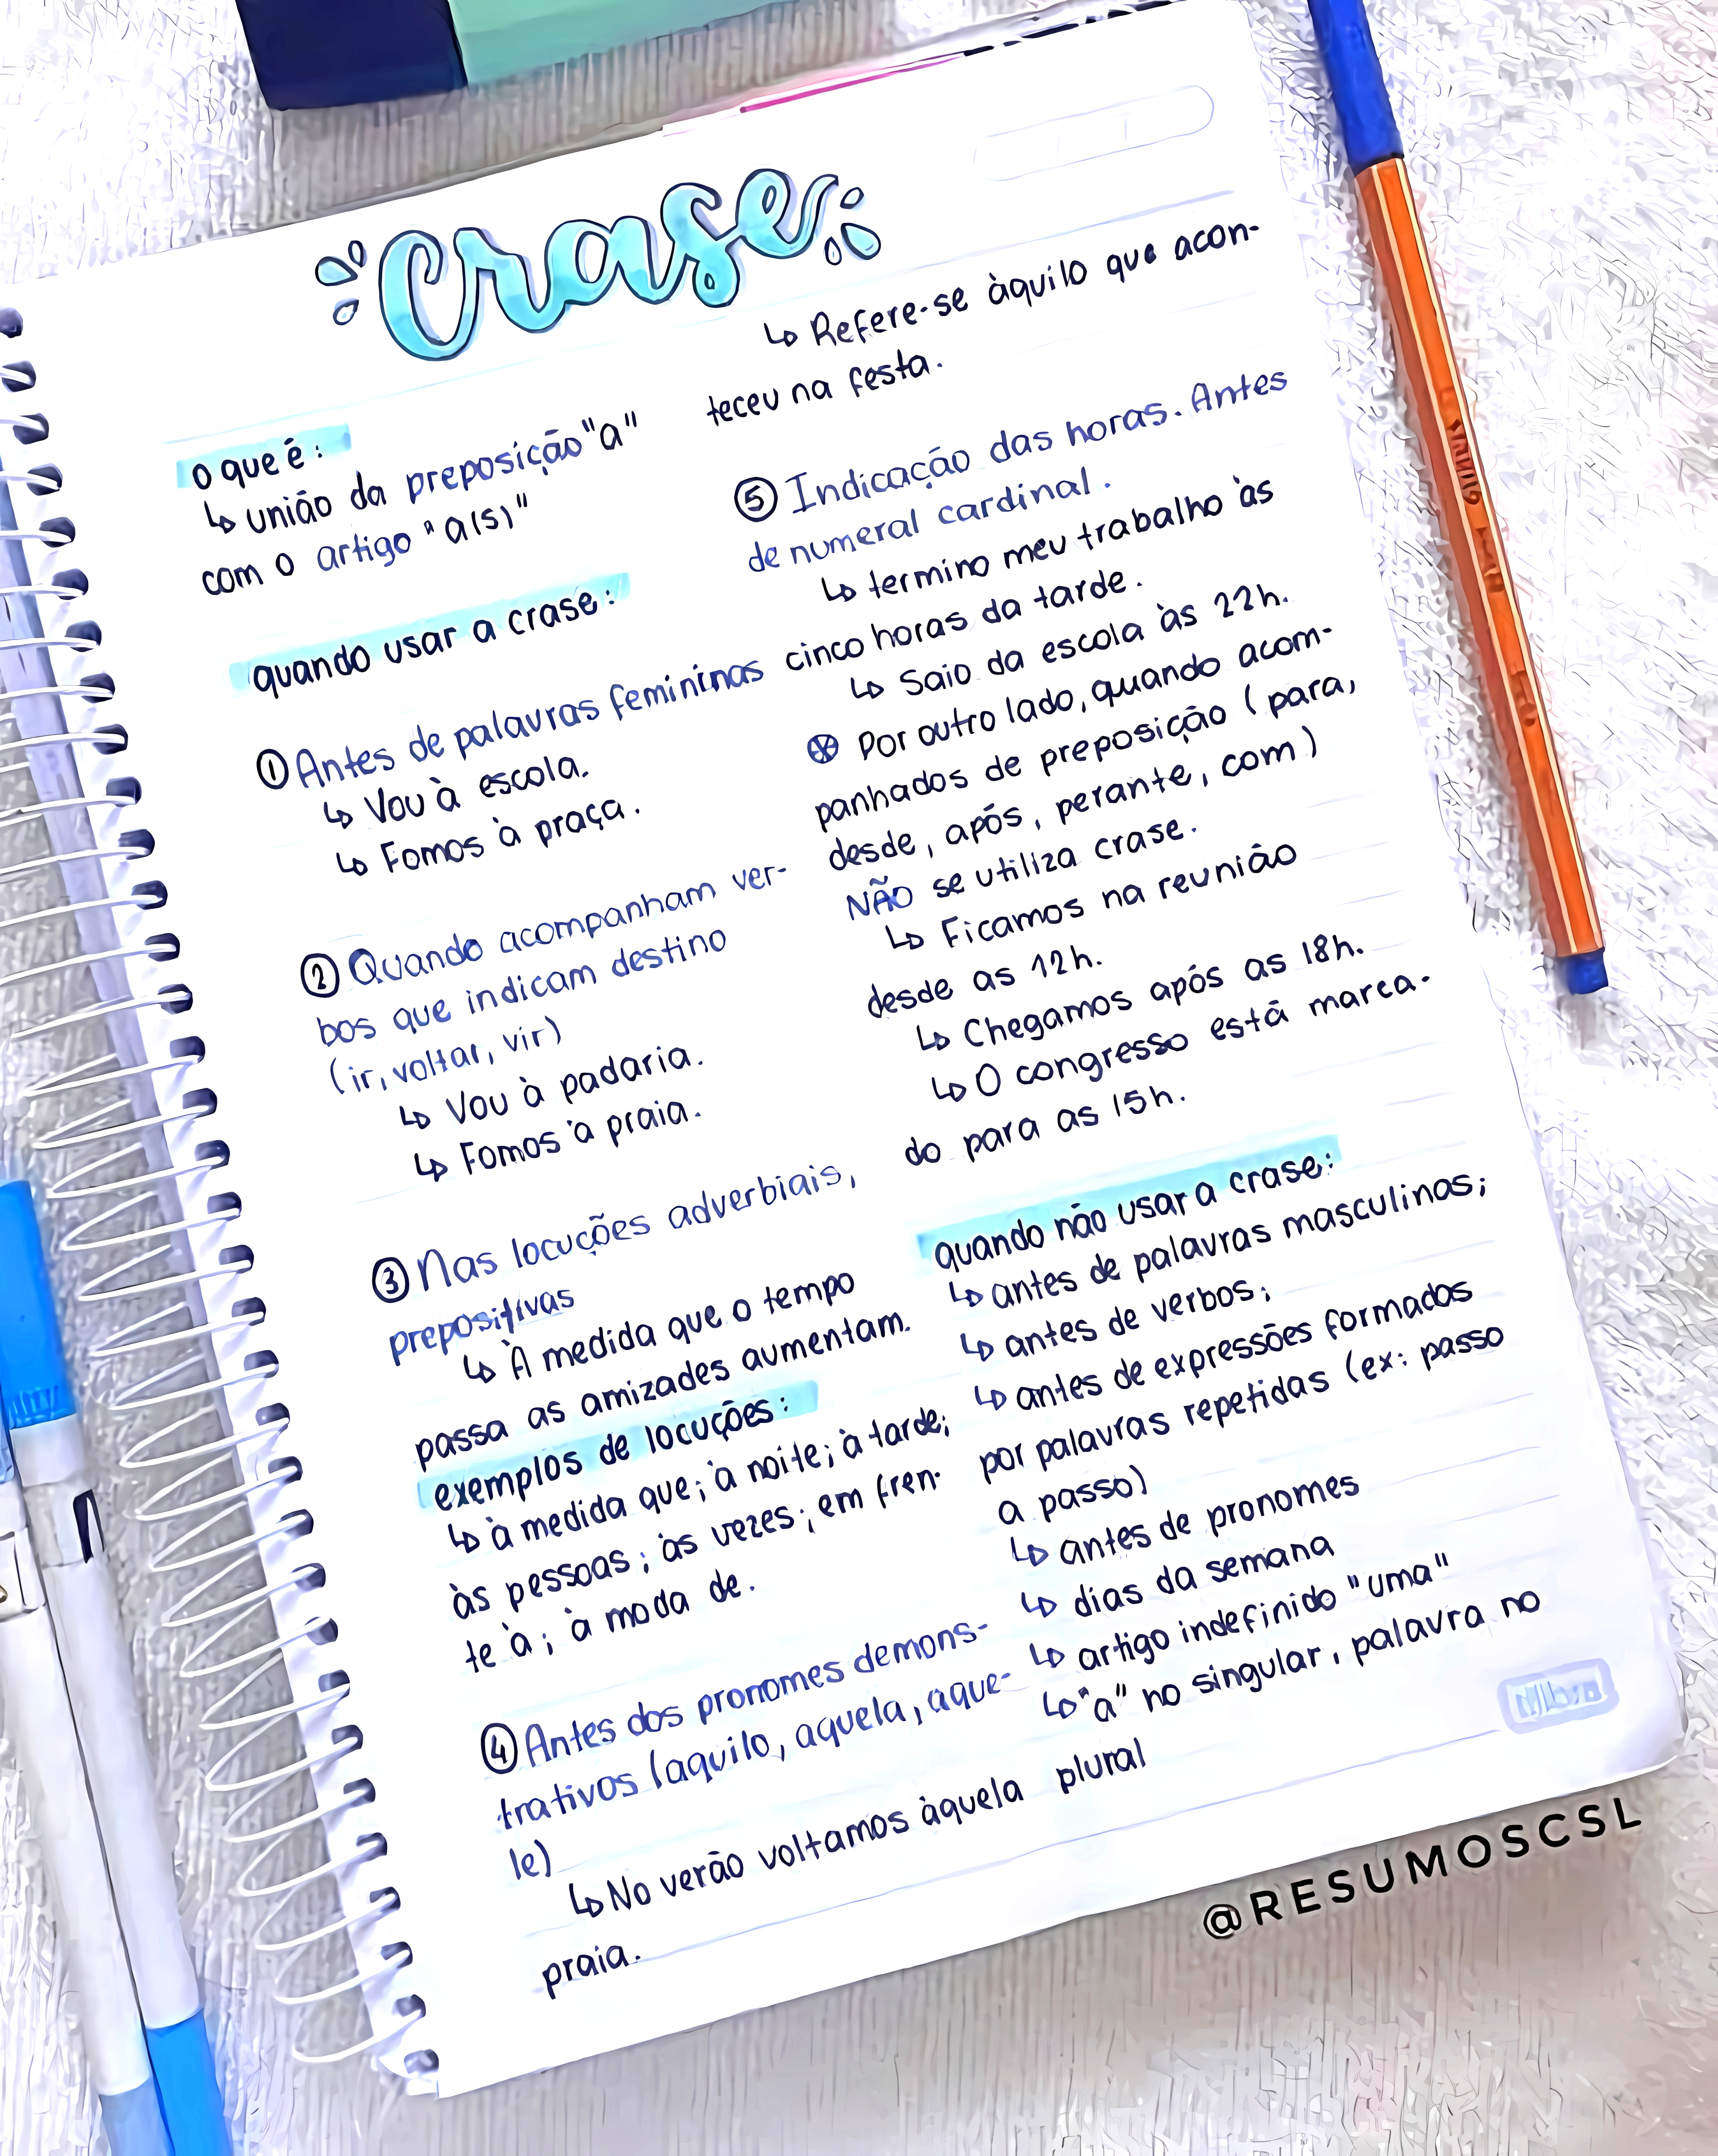 Crase
o que é:
↳ união da preposição "a"
com o artigo "a(s)"
quando usar a crase:
① Antes de palavras femininas
↳ Vou à escola.
↳ Fomos à praça.
② Quando acompanham ver-
bos que indicam destino
(ir, voltar, vir)
↳ Vou à padaria.
↳ Fomos à praia.
③ Nas locuções adverbiais,
prepositivas
↳ À medida que o tempo
passa as amizades aumentam.
exemplos de locuções:
↳ à medida que; à noite; à tarde;
às pessoas; às vezes; em fren-
te à; à moda de.
④ Antes dos pronomes demons-
trativos (aquilo, aquela, aque-
le)
↳ No verão voltamos àquela
praia.
↳ Refere-se àquilo que acon-
teceu na festa.
⑤ Indicação das horas. Antes
de numeral cardinal.
↳ termino meu trabalho às
cinco horas da tarde.
↳ Saio da escola às 22h.
⊛ Por outro lado, quando acom-
panhados de preposição (para,
desde, após, perante, com)
NÃO se utiliza crase.
↳ Ficamos na reunião
desde as 12h.
↳ Chegamos após as 18h.
↳ O congresso está marca-
do para as 15h.
quando não usar a crase:
↳ antes de palavras masculinas;
↳ antes de verbos;
↳ antes de expressões formados
por palavras repetidas (ex: passo
a passo)
↳ antes de pronomes
↳ dias da semana
↳ artigo indefinido "uma"
↳ "a" no singular, palavra no
plural
@RESUMOSCSL